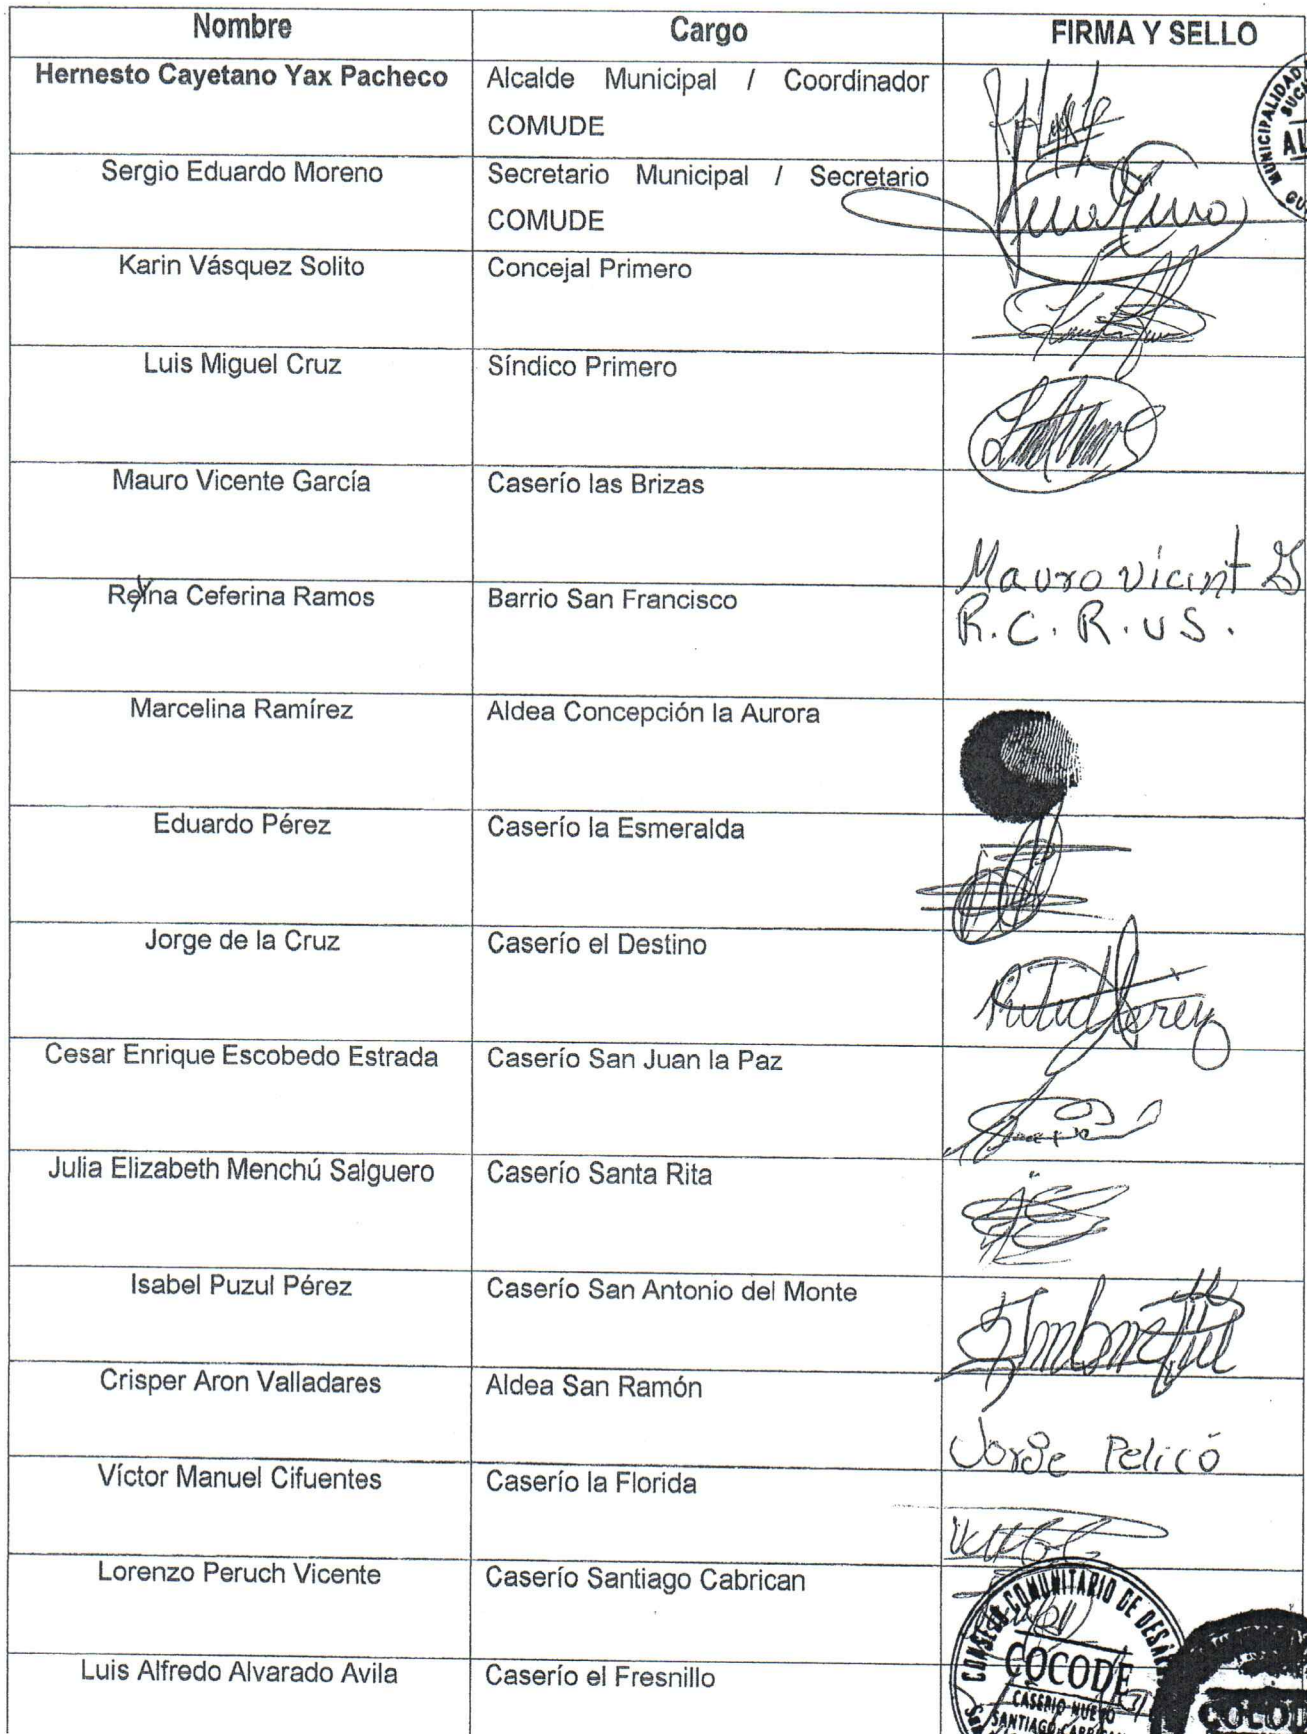 Nombre Cargo FIRMA Y SELLO
Hernesto Cayetano Yax Pacheco Alcalde Municipal / Coordinador
COMUDE
MUNICIPALIDAD
Sergio Eduardo Moreno Secretario Municipal / Secretario
COMUDE
Karin Vásquez Solito Concejal Primero
Luis Miguel Cruz Síndico Primero
Mauro Vicente García Caserío las Brizas
Mauro Vicint G
Reyna Ceferina Ramos Barrio San Francisco
R.C.R.US.
Marcelina Ramírez Aldea Concepción la Aurora
Eduardo Pérez Caserío la Esmeralda
Jorge de la Cruz Caserío el Destino
Cesar Enrique Escobedo Estrada Caserío San Juan la Paz
Julia Elizabeth Menchú Salguero Caserío Santa Rita
Isabel Puzul Pérez Caserío San Antonio del Monte
Crisper Aron Valladares Aldea San Ramón
Jorge Pelicó
Víctor Manuel Cifuentes Caserío la Florida
Lorenzo Peruch Vicente Caserío Santiago Cabrican
CONSEJO COMUNITARIO DE DESA
COCODE
CASERIO NUEVO
SANTIAGO CABRICAN
Luis Alfredo Alvarado Avila Caserío el Fresnillo